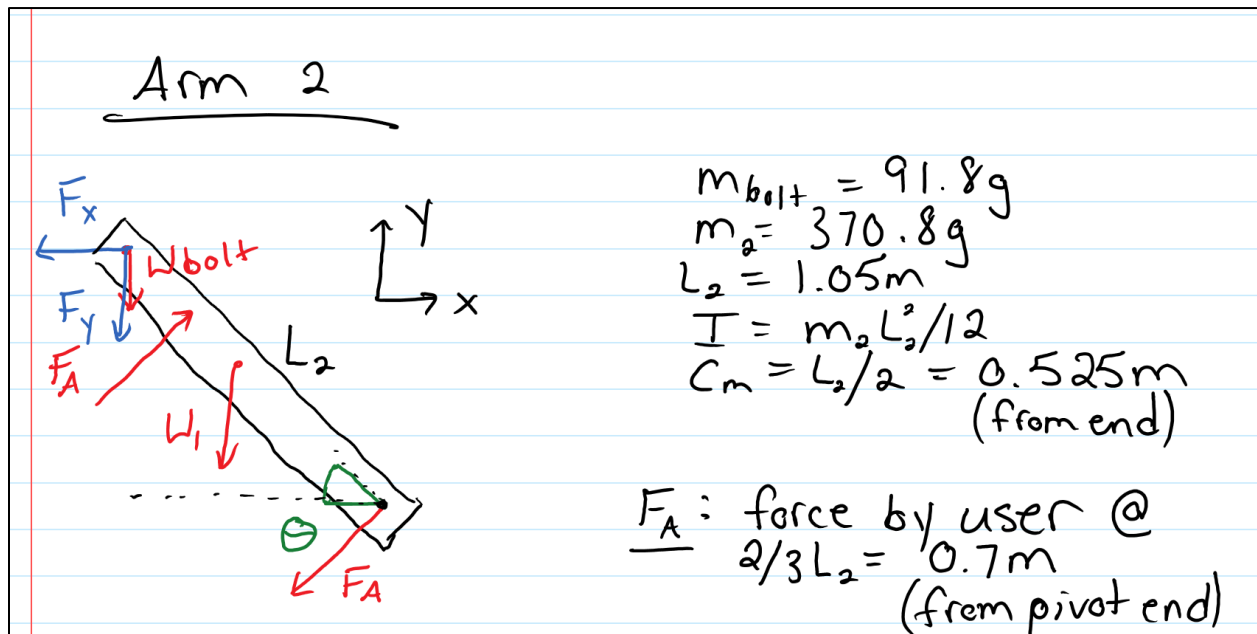 Arm 2
F_x
W_bolt
F_y
F_A
L_2
W_1
θ
F_A
y
x
m_bolt = 91.8g
m_2 = 370.8g
L_2 = 1.05m
I = m_2 L_2^2/12
C_m = L_2/2 = 0.525m
(from end)
F_A : force by user @
2/3 L_2 = 0.7m
(from pivot end)